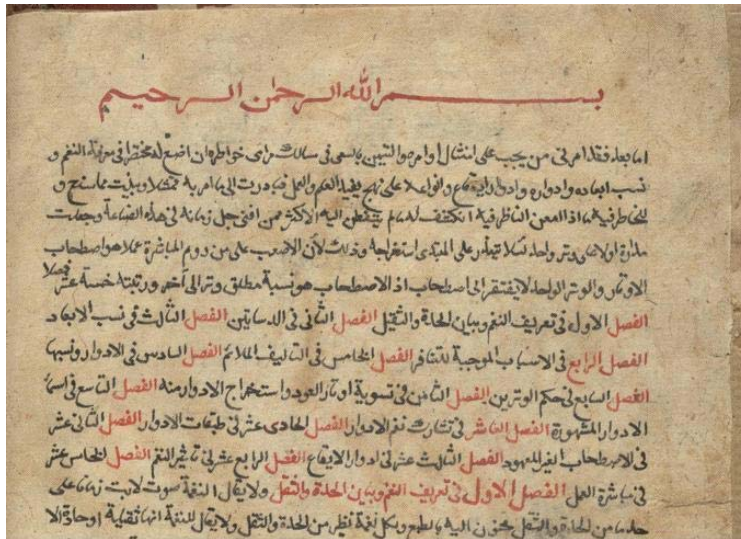 بسم الله الرحمن الرحيم
اما بعد فقد امرني من يجب على امتثال اوامره والتيمن بالسعى في مسالك مراى خواطره ان اضع له مختصرا في معرفة النغم و
نسب ابعاده وادواره وادوار الايقاع وانواعه على نهج يفيد العلم والعمل فبادرت الى ما امر به ممتثلا وبينت فيه ما سنح
للخاطر فيه ما اذا امعن الناظر فيه انكشف له ما لم يتفطن اليه الاكثر ممن افنى جل زمانه في هذه الصناعة وجعلت
مداره اولا على وتر واحد لئلا يتعذر على المبتدى استخراجه وذلك لان الاصعب على من يروم المباشرة عملا هو اصطحاب
الاوتار والوتر الواحد لا يفتقر الى اصطحاب اذ الاصطحاب هو نسبة مطلق وتر الى آخر ورتبته خمسة عشر فصلا
الفصل الاول في تعريف النغم وبيان الحدة والثقل الفصل الثانى في الدساتين الفصل الثالث في نسب الابعاد
الفصل الرابع في الاسباب الموجبة للتنافر الفصل الخامس في التاليف الملائم الفصل السادس في الادوار ونسبها
الفصل السابع في حكم الوترين الفصل الثامن في تسوية اوتار العود واستخراج الادوار منه الفصل التاسع في اسماء
الادوار المشهورة الفصل العاشر في تشارك نغم الادوار الفصل الحادى عشر في طبقات الادوار الفصل الثانى عشر
في الاصطحاب الغير المعهود الفصل الثالث عشر في ادوار الايقاع الفصل الرابع عشر في تاثير النغم الفصل الخامس عشر
في مباشرة العمل الفصل الاول في تعريف النغم وبيان الحدة والثقل ولا يقال النغمة صوت لابث زمانا على
حد ما من الحدة والثقل محنون اليه بالطبع وكل نغمة نظير من الحدة والثقل ولا يقال للنغمة انها ثقيلة او حادة الا